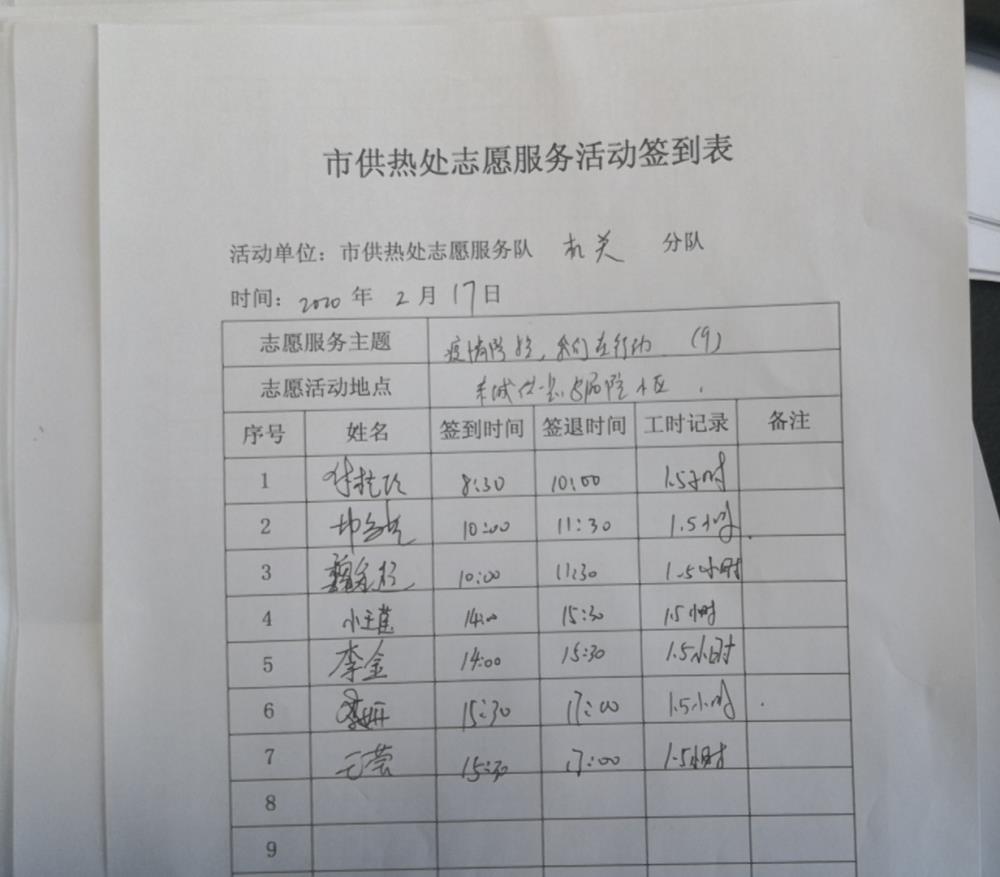 市供热处志愿服务活动签到表
活动单位：市供热处志愿服务队 机关 分队
时间：2020 年 2 月 17 日
志愿服务主题 疫情防控，我们在行动 (9)
志愿活动地点 小区
序号 姓名 签到时间 签退时间 工时记录 备注
1 8:30 10:00 1.5小时
2 10:00 11:30 1.5小时
3 10:00 11:30 1.5小时
4 14:00 15:30 1.5小时
5 李金 14:00 15:30 1.5小时
6 李妍 15:30 17:00 1.5小时
7 王芸 15:30 17:00 1.5小时
8
9